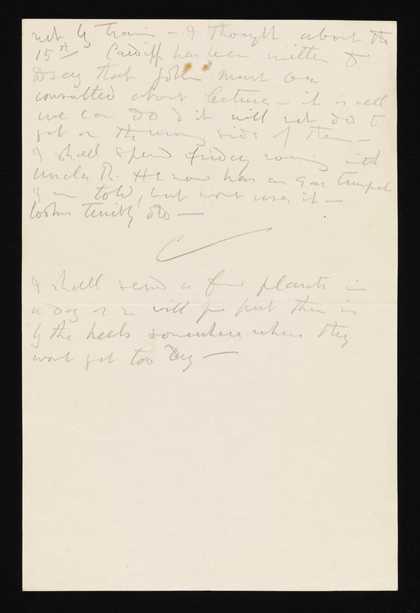 not by train – I thought about the
15th Cardiff has been written to
to say that John must be
consulted about lecture – it is all
we can do & it will not do to
get on the wrong side of them –
I shall spend Friday evening with
Uncle R. He now has an ear trumpet
I am told, but wont use it –
looks terribly old –
C
I shall send a few plants in
a day or so will you put them in
by the heels somewhere where they
wont get too dry –